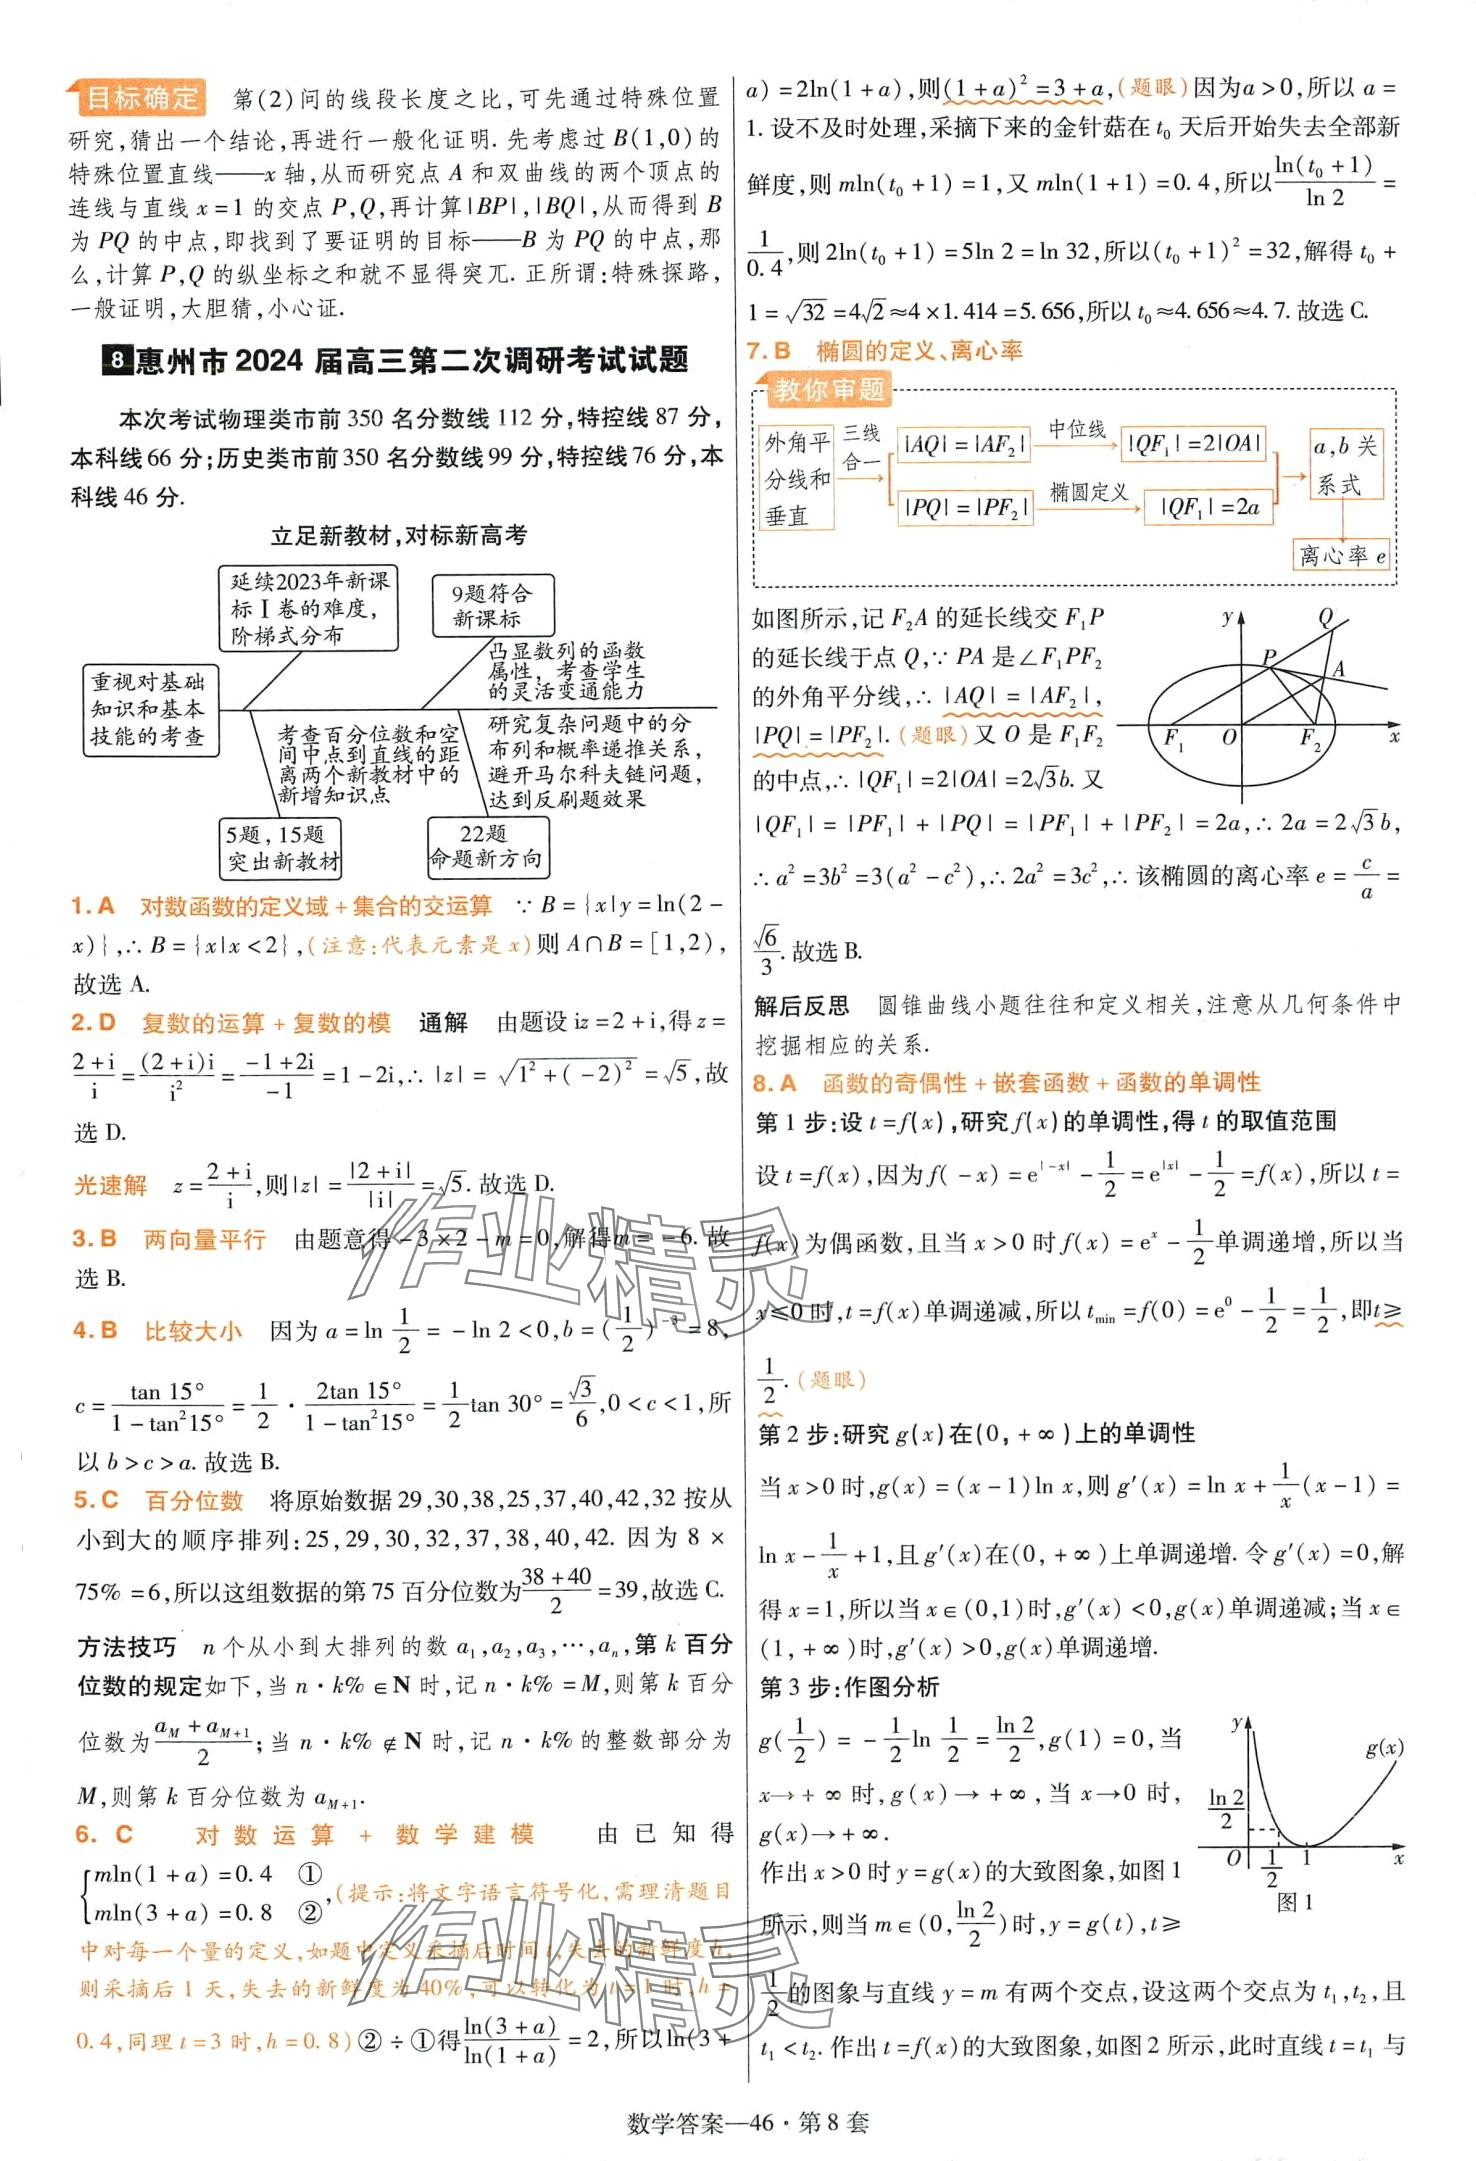 目标确定 第(2)问的线段长度之比,可先通过特殊位置
研究,猜出一个结论,再进行一般化证明. 先考虑过 B(1,0)的
特殊位置直线——x 轴,从而研究点 A 和双曲线的两个顶点的
连线与直线 x=1 的交点 P,Q,再计算|BP|,|BQ|,从而得到 B
为 PQ 的中点,即找到了要证明的目标——B 为 PQ 的中点,那
么,计算 P,Q 的纵坐标之和就不显得突兀. 正所谓:特殊探路,
一般证明,大胆猜,小心证.
8 惠州市 2024 届高三第二次调研考试试题
本次考试物理类市前 350 名分数线 112 分,特控线 87 分,
本科线 66 分;历史类市前 350 名分数线 99 分,特控线 76 分,本
科线 46 分.
立足新教材,对标新高考
延续2023年新课
标Ⅰ卷的难度,
阶梯式分布
9题符合
新课标
重视对基础
知识和基本
技能的考查
凸显数列的函数
属性，考查学生
的灵活变通能力
考查百分位数和空
间中点到直线的距
离两个新教材中的
新增知识点
研究复杂问题中的分
布列和概率递推关系，
避开马尔科夫链问题，
达到反刷题效果
5题，15题
突出新教材
22题
命题新方向
1. A 对数函数的定义域+集合的交运算 ∵B={x|y=ln(2-
x)},∴B={x|x<2},(注意:代表元素是 x)则 A∩B=[1,2),
故选 A.
2. D 复数的运算+复数的模 通解 由题设 iz=2+i,得 z=
\frac{2+i}{i}=\frac{(2+i)i}{i^2}=\frac{-1+2i}{-1}=1-2i,∴|z|=\sqrt{1^2+(-2)^2}=\sqrt{5},故
选 D.
光速解 z=\frac{2+i}{i},则|z|=\frac{|2+i|}{|i|}=\sqrt{5}. 故选 D.
3. B 两向量平行 由题意得-3×2-m=0,解得m=-6. 故
选 B.
4. B 比较大小 因为 a=ln \frac{1}{2}=-ln 2<0,b=(\frac{1}{2})^{-3}=8,
c=\frac{tan 15°}{1-tan^2 15°}=\frac{1}{2}·\frac{2tan 15°}{1-tan^2 15°}=\frac{1}{2}tan 30°=\frac{\sqrt{3}}{6},0<c<1,所
以 b>c>a. 故选 B.
5. C 百分位数 将原始数据 29,30,38,25,37,40,42,32 按从
小到大的顺序排列:25,29,30,32,37,38,40,42. 因为 8×
75%=6,所以这组数据的第 75 百分位数为\frac{38+40}{2}=39,故选 C.
方法技巧 n 个从小到大排列的数 a_1,a_2,a_3,…,a_n,第 k 百分
位数的规定如下,当 n·k%∈N 时,记 n·k%=M,则第 k 百分
位数为\frac{a_M+a_{M+1}}{2};当 n·k%∉N 时,记 n·k%的整数部分为
M,则第 k 百分位数为 a_{M+1}.
6. C 对数运算+数学建模 由已知得
{mln(1+a)=0.4 ①
mln(3+a)=0.8 ②,(提示:将文字语言符号化,需理清题目
中对每一个量的定义,如题中定义采摘后时间 t,失去的新鲜度 h,
则采摘后 1 天,失去的新鲜度为 40%,可以转化为 t=1 时,h=
0.4,同理 t=3 时,h=0.8)②÷①得\frac{ln(3+a)}{ln(1+a)}=2,所以ln(3+
a)=2ln(1+a),则(1+a)^2=3+a,(题眼)因为a>0,所以 a=
1. 设不及时处理,采摘下来的金针菇在 t_0 天后开始失去全部新
鲜度,则 mln(t_0+1)=1,又 mln(1+1)=0.4,所以\frac{ln(t_0+1)}{ln 2}=
\frac{1}{0.4},则 2ln(t_0+1)=5ln 2=ln 32,所以(t_0+1)^2=32,解得 t_0+
1=\sqrt{32}=4\sqrt{2}≈4×1.414=5.656,所以 t_0≈4.656≈4.7. 故选 C.
7. B 椭圆的定义、离心率
教你审题
外角平
分线和
垂直
三线
合一
|AQ|=|AF_2|
中位线
|QF_1|=2|OA|
|PQ|=|PF_2|
椭圆定义
|QF_1|=2a
a,b 关
系式
离心率 e
如图所示,记 F_2A 的延长线交 F_1P
的延长线于点 Q,∵PA 是∠F_1PF_2
的外角平分线,∴|AQ|=|AF_2|,
|PQ|=|PF_2|. (题眼)又 O 是 F_1F_2
的中点,∴|QF_1|=2|OA|=2\sqrt{3}b. 又
y Q P A F_1 O F_2 x
|QF_1|=|PF_1|+|PQ|=|PF_1|+|PF_2|=2a,∴2a=2\sqrt{3}b,
∴a^2=3b^2=3(a^2-c^2),∴2a^2=3c^2,∴该椭圆的离心率 e=\frac{c}{a}=
\frac{\sqrt{6}}{3}. 故选 B.
解后反思 圆锥曲线小题往往和定义相关,注意从几何条件中
挖掘相应的关系.
8. A 函数的奇偶性+嵌套函数+函数的单调性
第 1 步:设 t=f(x),研究 f(x)的单调性,得 t 的取值范围
设 t=f(x),因为 f(-x)=e^{|-x|}-\frac{1}{2}=e^{|x|}-\frac{1}{2}=f(x),所以 t=
f(x)为偶函数,且当 x>0 时 f(x)=e^x-\frac{1}{2}单调递增,所以当
x≤0 时,t=f(x)单调递减,所以 t_{min}=f(0)=e^0-\frac{1}{2}=\frac{1}{2},即t≥
\frac{1}{2}. (题眼)
第 2 步:研究 g(x)在(0,+∞)上的单调性
当 x>0 时,g(x)=(x-1)ln x,则 g′(x)=ln x+\frac{1}{x}(x-1)=
ln x-\frac{1}{x}+1,且 g′(x)在(0,+∞)上单调递增. 令 g′(x)=0,解
得 x=1,所以当 x∈(0,1)时,g′(x)<0,g(x)单调递减;当 x∈
(1,+∞)时,g′(x)>0,g(x)单调递增.
第 3 步:作图分析
g(\frac{1}{2})=-\frac{1}{2}ln \frac{1}{2}=\frac{ln 2}{2},g(1)=0,当
x→+∞时,g(x)→+∞,当 x→0 时,
g(x)→+∞.
y g(x) \frac{ln 2}{2} O \frac{1}{2} 1 x
图 1
作出 x>0 时 y=g(x)的大致图象,如图 1
所示,则当 m∈(0,\frac{ln 2}{2})时,y=g(t),t≥
\frac{1}{2}的图象与直线 y=m 有两个交点,设这两个交点为 t_1,t_2,且
t_1<t_2. 作出 t=f(x)的大致图象,如图 2 所示,此时直线 t=t_1 与
数学答案—46·第 8 套
作业精灵
作业精灵